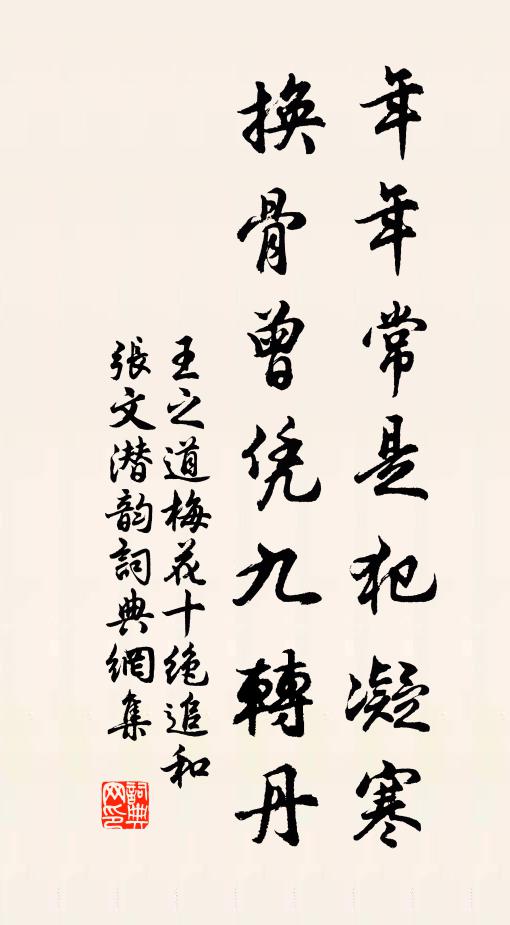 年年常是犯凝寒
換骨曾凭九轉丹
王之道梅花十绝追和
張文潜韵詞典網集
詞典网印